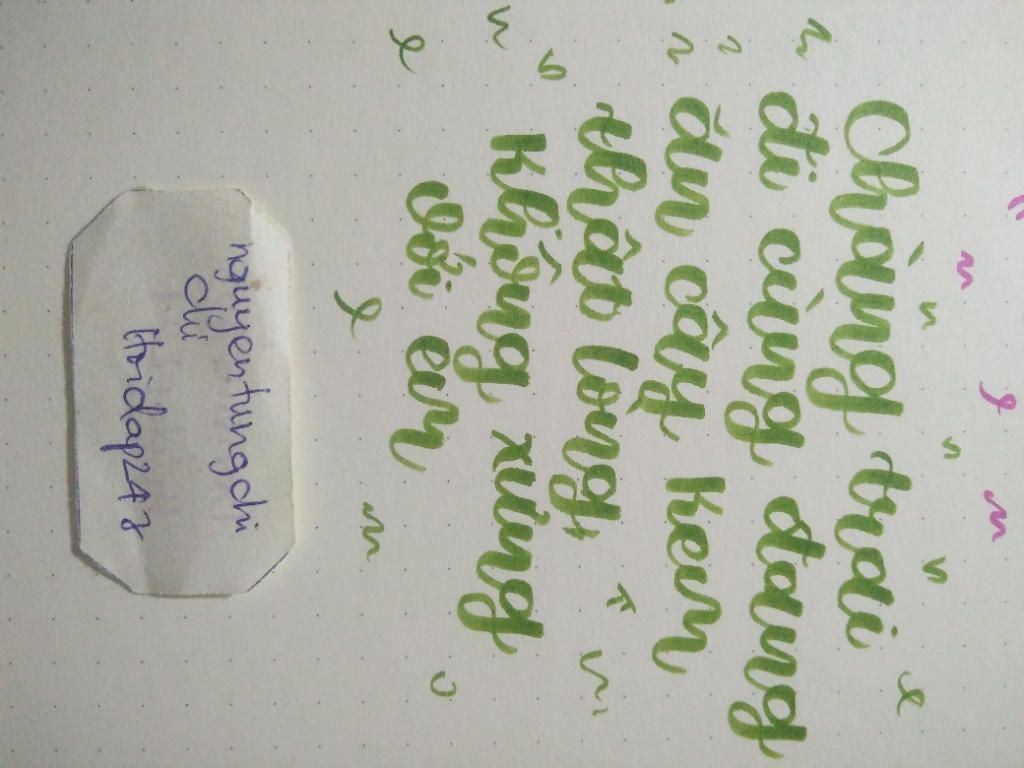 Chàng trai
đi cùng đang
ăn cây kem
thật lòng,
không xứng
với em
nguyentungchi
chi
Hoidap247